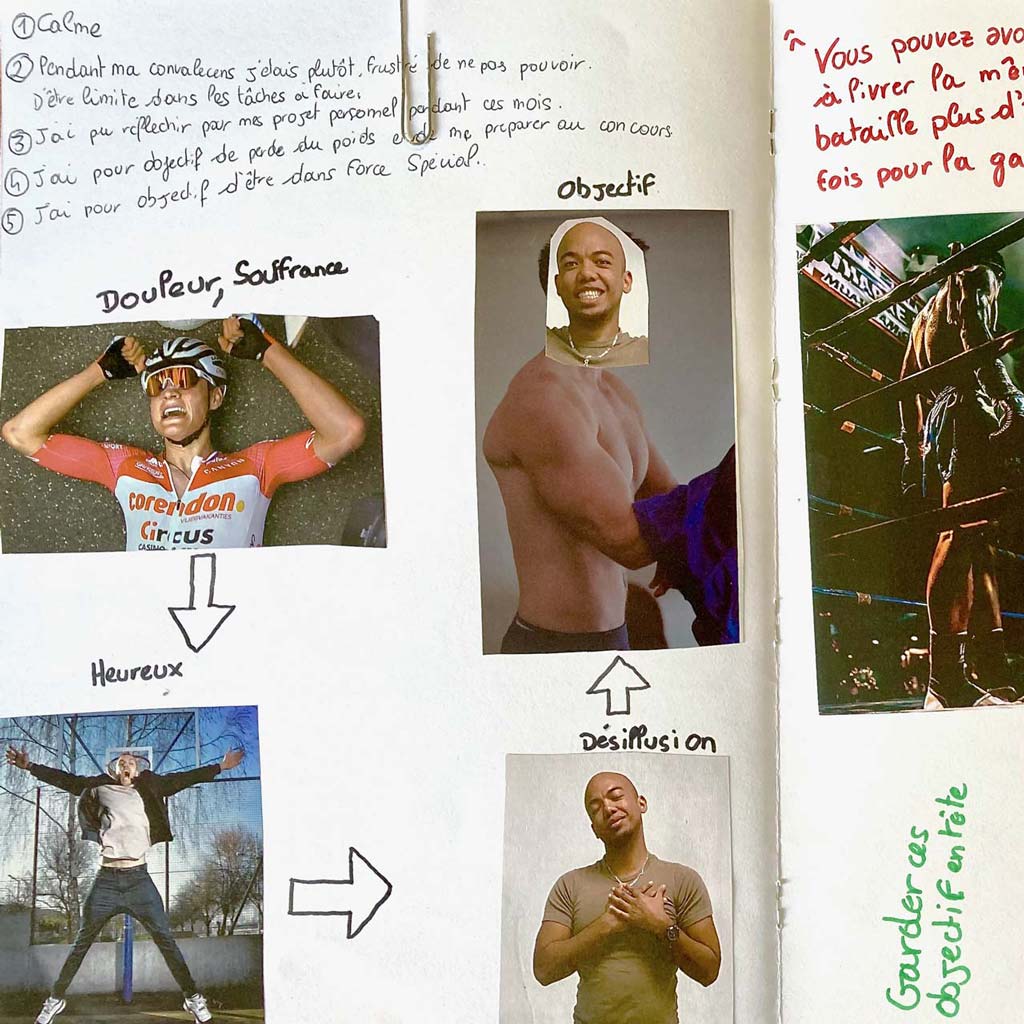 ① Calme
② Pendant ma convalecens j'étais plutôt, frustré de ne pas pouvoir.
D'être limite dans les tâches à faire.
③ J'ai pu réflechir pour mes projet personnel pendant ces mois.
④ J'ai pour objectif de perde du poids et de me preparer au concours
⑤ J'ai pour objectif d'être dans Force Spécial.
Douleur, Souffrance
Objectif
corendon
VLIEGVAKANTIES
CIRCUS
CANYON
Heureux
Désillusion
Vous pouvez avo
à livrer la mê
bataille plus d'
fois pour la ga
Garder ces
objectif en tête